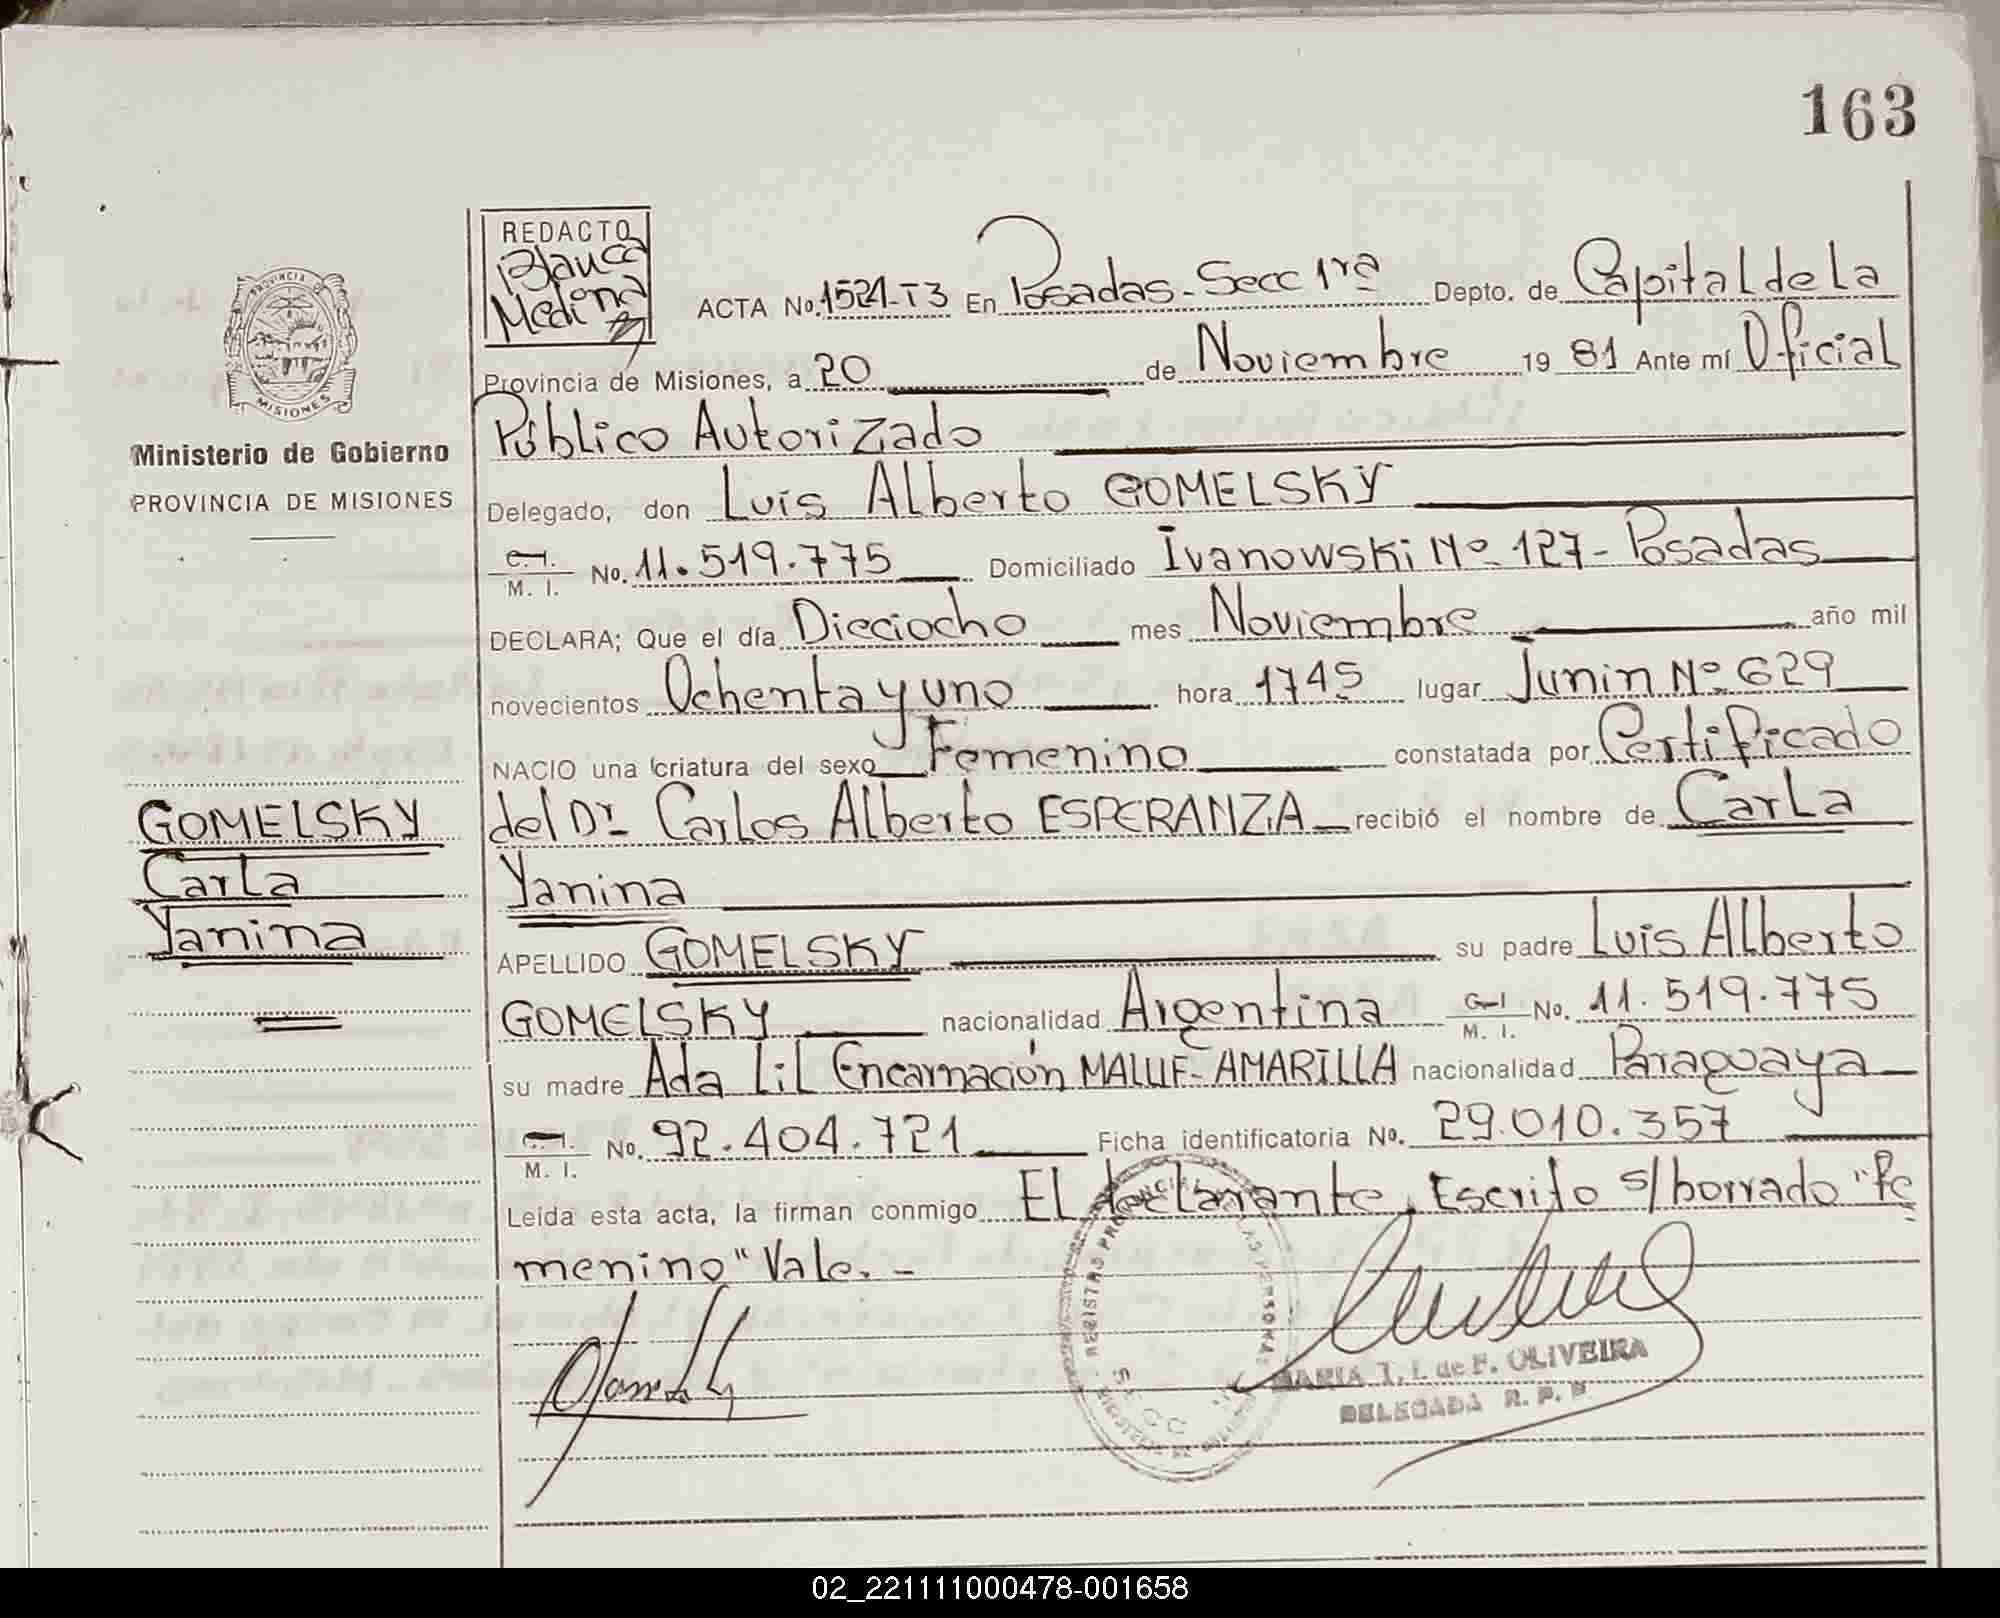 163
REDACTO
Blanca
Medina
ACTA No. 1521-T3 En Posadas-Secc 1ra Depto. de Capital de La
Provincia de Misiones, a 20 de Noviembre 19 81 Ante mí Oficial
Público Autorizado
Delegado, don Luis Alberto GOMELSKY
C.I. M. I. No. 11.519.775 Domiciliado Ivanowski Nº 127- Posadas
DECLARA; Que el día Dieciocho mes Noviembre año mil
novecientos Ochenta y uno hora 1745 lugar Junin Nº 629
NACIO una criatura del sexo Femenino constatada por Certificado
del Dr Carlos Alberto ESPERANZA recibió el nombre de Carla
Yanina
APELLIDO GOMELSKY su padre Luis Alberto
GOMELSKY nacionalidad Argentina C.I. M. I. No. 11.519.775
su madre Ada Lil Encarnación MALUF-AMARILLA nacionalidad Paraguaya
C.I. M. I. No. 92.404.721 Ficha identificatoria No. 29.010.357
Leída esta acta, la firman conmigo El declarante, Escrito s/borrado "Fe
menino" Vale.-
PROVINCIA
MISIONES
Ministerio de Gobierno
PROVINCIA DE MISIONES
GOMELSKY
Carla
Yanina
MARIA T. I. de F. OLIVEIRA
DELEGADA R. P. P.
02_221111000478-001658